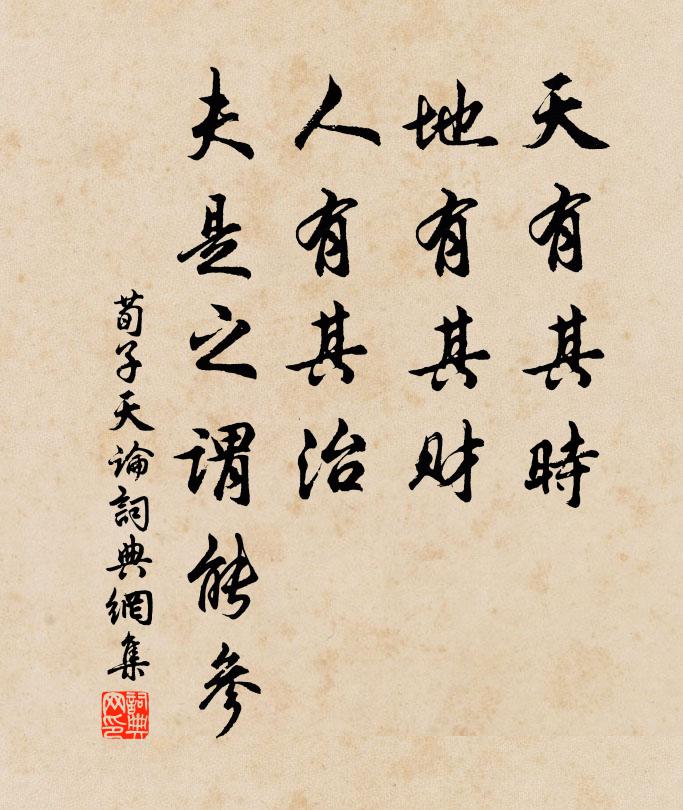 天有其時
地有其財
人有其治
夫是之謂能參
荀子天論詞典網集
詞典
网印